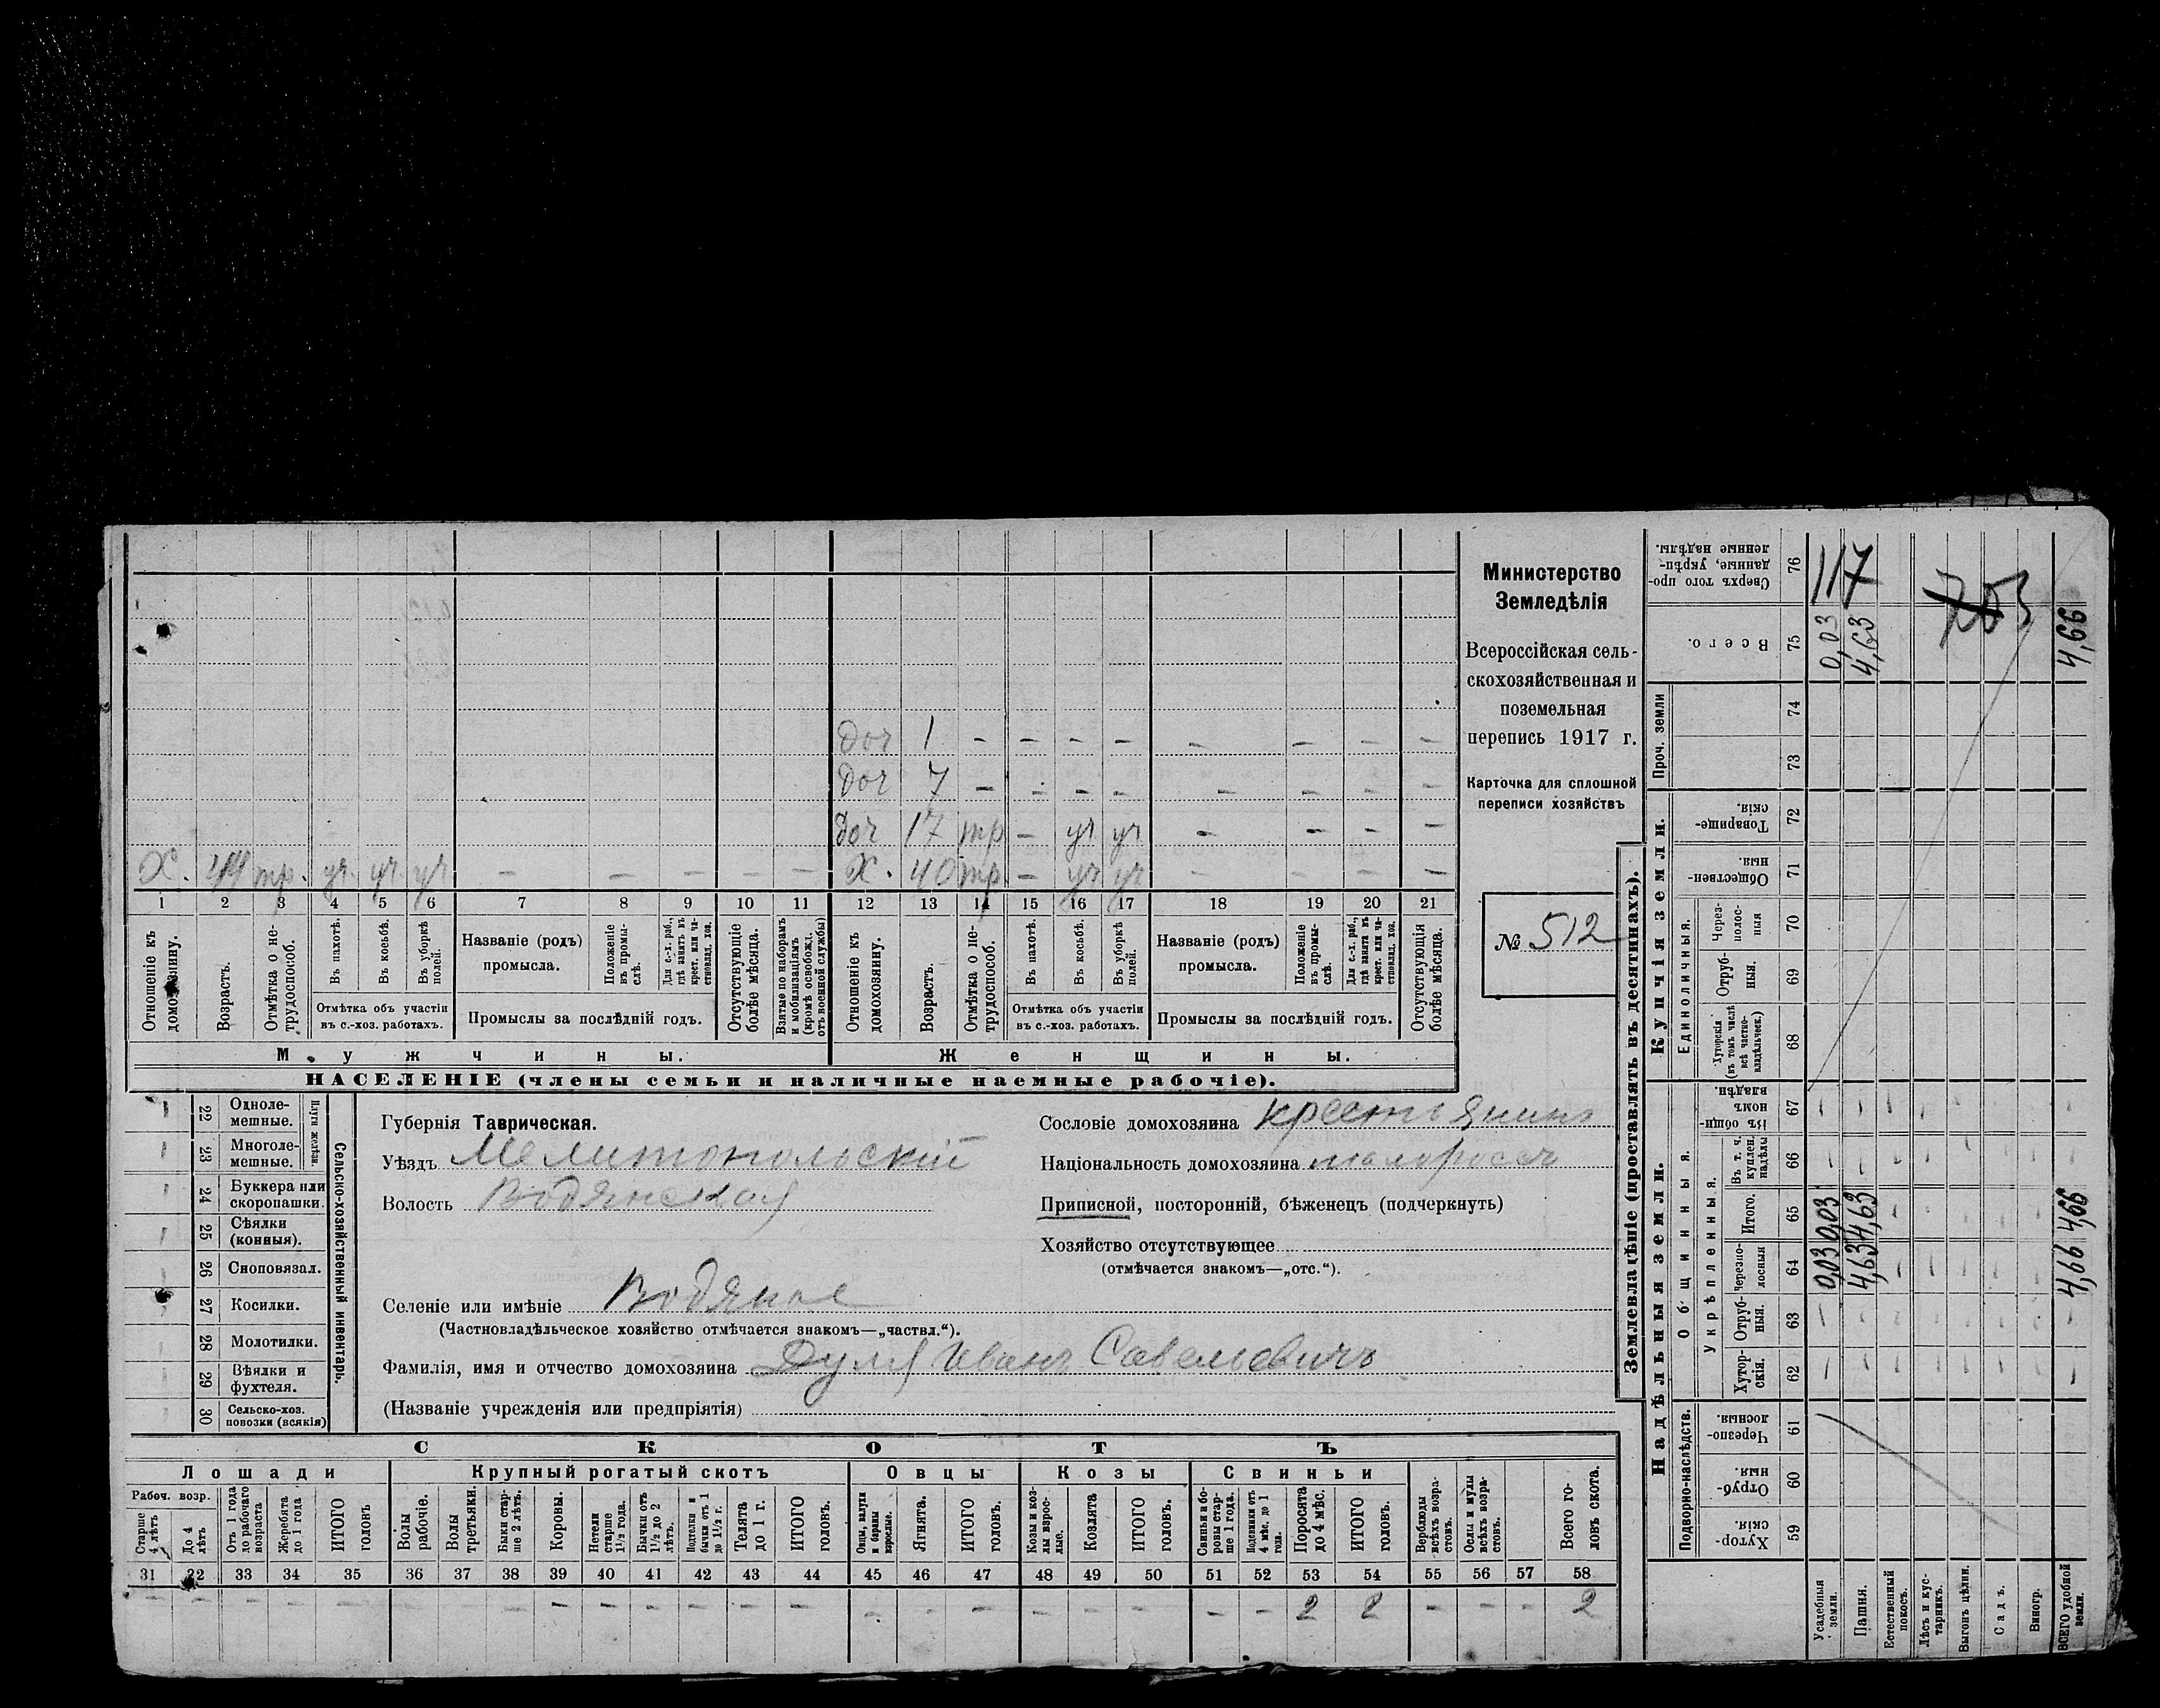 Министерство
Земледѣлія
Всероссійская сель-
скохозяйственная и
поземельная
перепись 1917 г.
Карточка для сплошной
переписи хозяйствъ
№ 512
доч 1 - - - - - - - -
доч 7 - - - - - - - -
доч 17 тр - уч уч - - - -
Х. 44 тр. уч. уч. уч - - - - - Х. 40 тр - уч уч - - - -
1 2 3 4 5 6 7 8 9 10 11 12 13 14 15 16 17 18 19 20 21
Отношеніе къ домохозяину.
Возрастъ.
Отмѣтка о не-трудоспособ.
Въ пахотѣ.
Въ косьбѣ.
Въ уборкѣ полей.
Отмѣтка объ участіи въ с.-хоз. работахъ.
Названіе (родъ) промысла.
Положеніе въ промы-слѣ.
Для с.-х. раб., гдѣ занятъ въ крест. или ча-стновлад. хоз.
Промыслы за послѣдній годъ.
Отсутствующіе болѣе мѣсяца.
Взятые по наборамъ и мобилизаціямъ (кромѣ освобожд. отъ военной службы)
Отношеніе къ домохозяину.
Возрастъ.
Отмѣтка о не-трудоспособ.
Въ пахотѣ.
Въ косьбѣ.
Въ уборкѣ полей.
Отмѣтка объ участіи въ с.-хоз. работахъ.
Названіе (родъ) промысла.
Положеніе въ промы-слѣ.
Для с.-х. раб., гдѣ занята въ крест. или ча-стновлад. хоз.
Промыслы за послѣдній годъ.
Отсутствующія болѣе мѣсяца.
Мужчины. Женщины.
НАСЕЛЕНІЕ (члены семьи и наличные наемные рабочіе).
22 Одноле-мешные.
23 Многоле-мешные.
Плуги желѣзн.
24 Буккера или скоропашки.
25 Сѣялки (конныя).
26 Сноповязал.
27 Косилки.
28 Молотилки.
29 Вѣялки и фухтеля.
30 Сельско-хоз. повозки (всякія)
Сельско-хозяйственный инвентарь.
Губернія Таврическая.
Уѣздъ Мелитопольскій
Волость Водянская
Селеніе или имѣніе Водяное
(Частновладѣльческое хозяйство отмѣчается знакомъ—„частвл.“).
Фамилія, имя и отчество домохозяина Дуля Иванъ Савельевичъ
(Названіе учрежденія или предпріятія)
Сословіе домохозяина крестьянинъ
Національность домохозяина малороссъ
Приписной, посторонній, бѣженецъ (подчеркнуть)
Хозяйство отсутствующее
(отмѣчается знакомъ—„отс.“).
СКОТЪ
Лошади Крупный рогатый скотъ Овцы Козы Свиньи
Рабоч. возр.
Старше 4 лѣтъ
До 4 лѣтъ
Отъ 1 года до рабочаго возраста
Жеребята до 1 года
ИТОГО головъ
Волы рабочіе.
Волы третьяки.
Быки стар-ше 2 лѣтъ.
Коровы.
Нетели старше 1½ года.
Бычки отъ 1½ до 2 лѣтъ.
Подтелки и бычки отъ 1 до 1½ г.
Телята до 1 г.
ИТОГО головъ.
Овцы, валухи и бараны взрослые.
Ягнята.
ИТОГО головъ.
Козы и коз-лы взрос-лые.
Козлята
ИТОГО головъ.
Свиньи и бо-ровы стар-ше 1 года.
Подсвинки отъ 4 мѣс. до 1 года.
Поросята до 4 мѣс.
ИТОГО головъ.
Верблюды всѣхъ возра-стовъ.
Ослы и мулы всѣхъ возра-стовъ.
Всего го-ловъ скота.
31 32 33 34 35 36 37 38 39 40 41 42 43 44 45 46 47 48 49 50 51 52 53 54 55 56 57 58
- - - - - - - - - - - - - - - - - - - - - - 2 2 - - - 2
Землевладѣніе (проставлять въ десятинахъ).
Надѣльныя земли. Купчія земли. Проч. земли
Подворно-наслѣдств.
Общинныя.
Укрѣпленныя.
Единоличныя.
Хутор-скія. 59
Отруб-ныя. 60
Черезпо-лосныя 61
Хутор-скія. 62
Отруб-ныя. 63
Черезпо-лосныя 64
Итого. 65
Въ т. ч. куплен. надѣлы 66
Въ общи-номъ владѣн. 67
Хуторскія (въ томъ числѣ всѣ частно-владѣльческ.) 68
Отруб-ныя. 69
Через-полос-ныя 70
Обществен-ныя. 71
Товарище-скія. 72
73
74
Всего. 75
Сверхъ того про-данные, укрѣп-ленные надѣлы. 76
Усадебныя земли. 0,03 0,03 0,03
Пашня. 4,63 4,63 4,63
Естественный покосъ.
Лѣсъ и кус-тарникъ.
Выгонъ цѣлин.
Садъ.
Виногр.
ВСЕГО удобной земли. 4,66 4,66 4,66
117
703